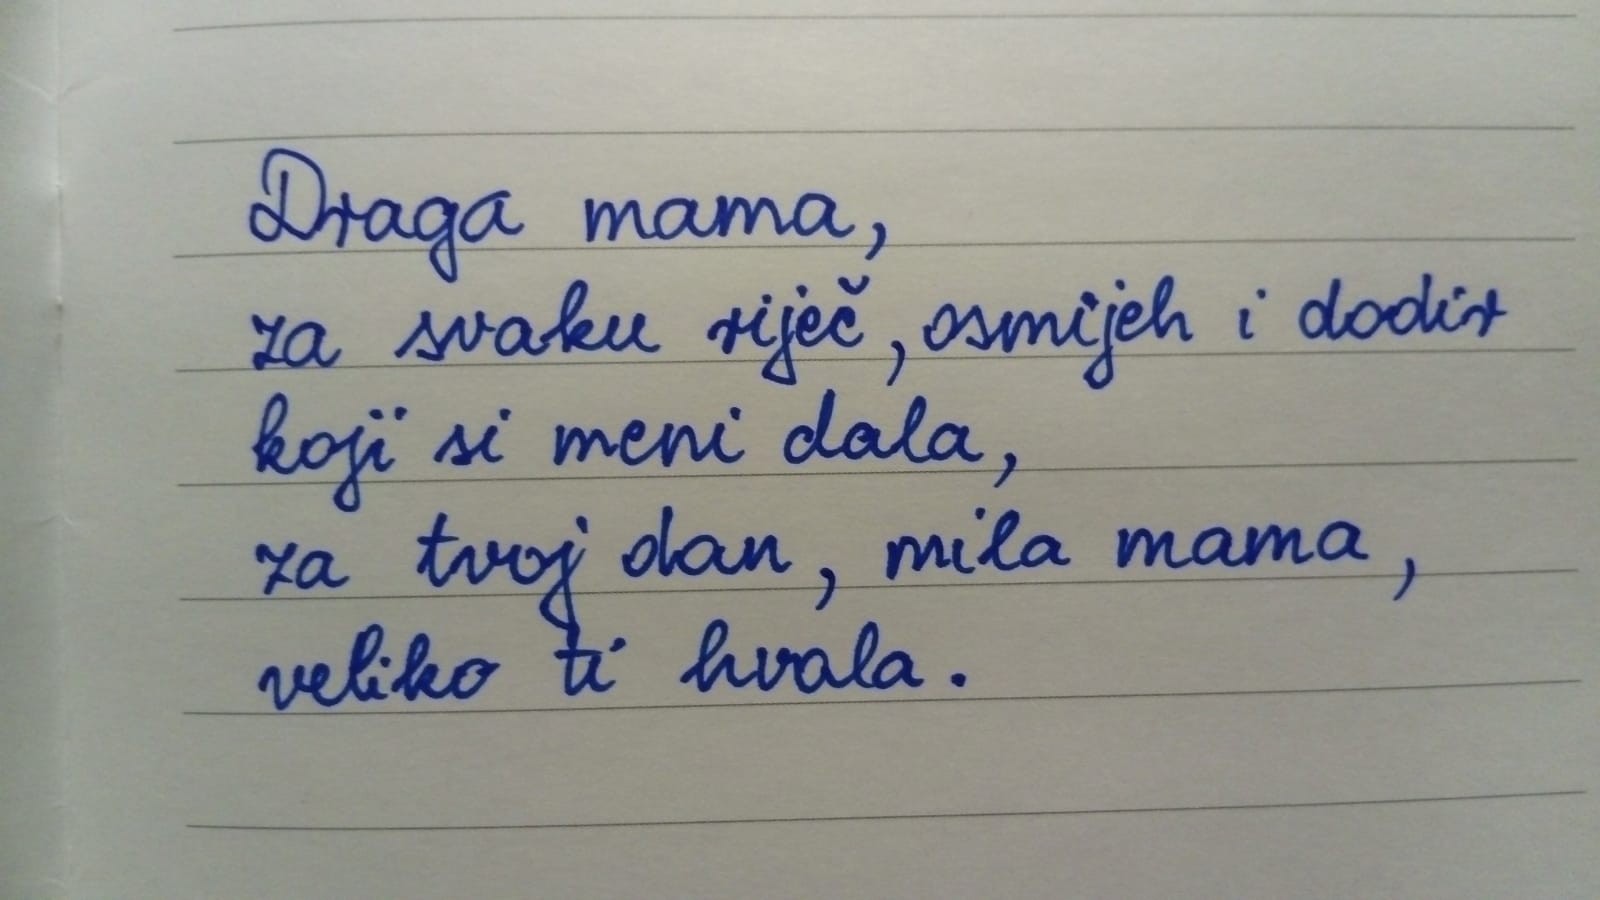 Draga mama,
za svaku riječ, osmijeh i dodir
koji si meni dala,
za tvoj dan, mila mama,
veliko ti hvala.